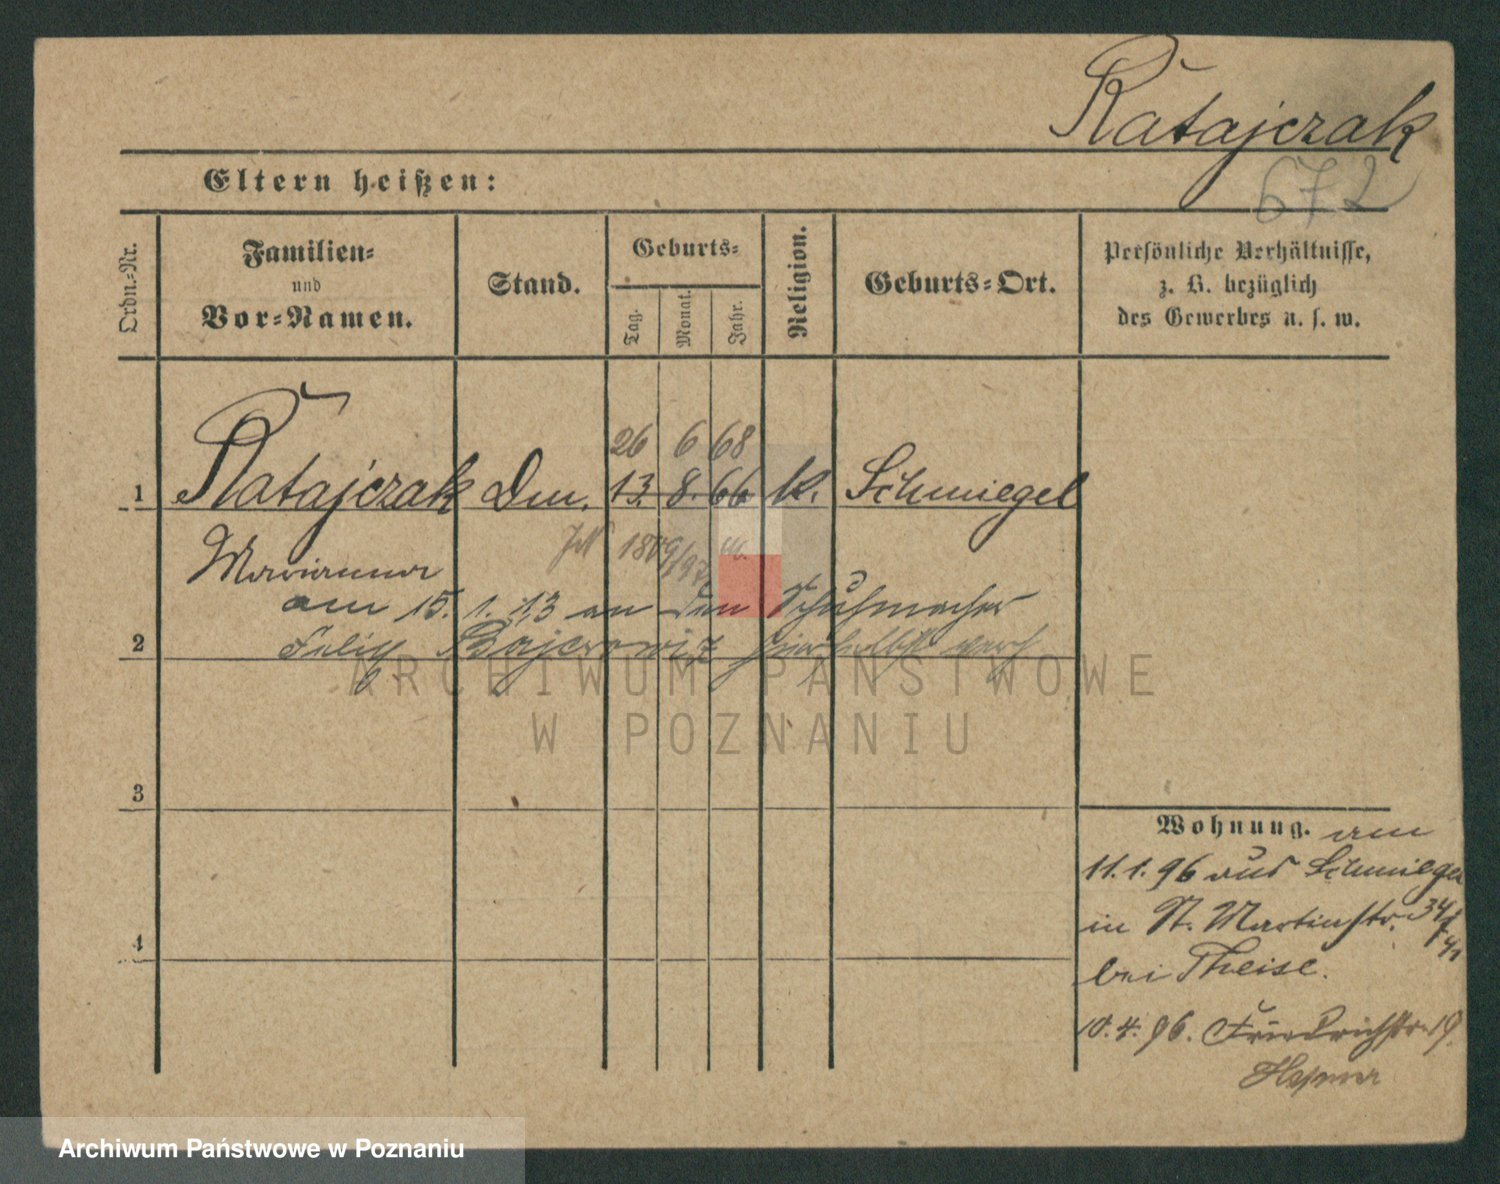 Ratajczak
672
Eltern heißen:
Ordn.=Nr.
Familien=
und
Vor=Namen.
Stand.
Geburts=
Tag.
Monat.
Jahr.
Religion.
Geburts=Ort.
Persönliche Verhältnisse,
z. B. bezüglich
des Gewerbes u. s. w.
26 6 68
1 Ratajczak Dm. 13. 8. 66 k. Schmiegel
Marianna
am 15. 1. 13 an den Schuhmacher
2 Felix Bajerowicz hierselbst verh
3
4
Wohnung. am
11.1.96 aus Schmiegel
in St. Martinstr. 34
bei Theise.
10.4.96. Friedrichstr. 19.
ARCHIWUM PAŃSTWOWE
W POZNANIU
Archiwum Państwowe w Poznaniu